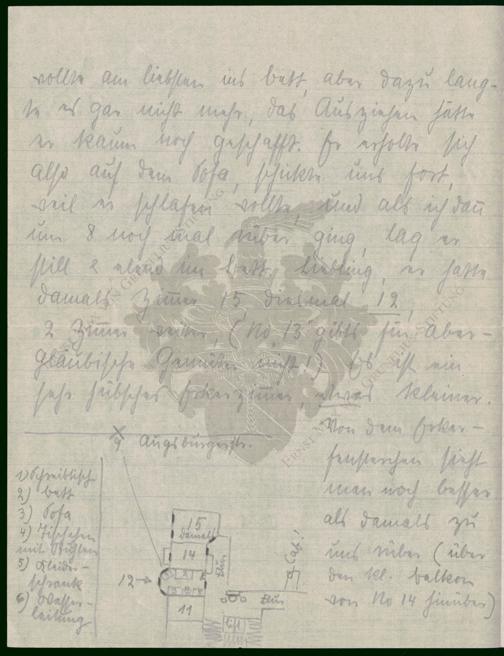 wollte am liebsten ins bett, aber dazu lang-
te es gar nicht mehr, das Ausziehen hätte
er kaum noch geschafft. Er erholte sich
also auf dem Sofa, schickte uns fort,
weil er schlafen wollte, und als ich dan
um 8 noch mal rüber ging, lag er
still & elend im bett. Liebling, er hatte
damals Zimmer 15 diesmal 12,
2 Zimer weiter, (No 13 gibts für Aber-
gläubische Gemüter nicht!) Es ist ein
sehr hübsches Erkerzimer, etwas kleiner.
Von dem Erker-
fensterchen sieht
man noch besser
als damals zu
uns rüber (über
den kl. balkon
von No 14 hinüber)
Augsburgerstr.
1) Schreibtisch
2) bett
3) Sofa
4) Tischchen
mit Stühlen
5) Kleider-
schrank
6) Wasser-
leitung
15
damals
14
12 →
11
flur
flur
ERNST VON GENERAL STIFTUNG